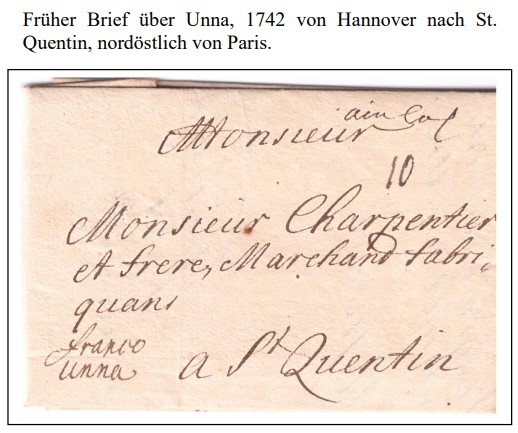 Früher Brief über Unna, 1742 von Hannover nach St.
Quentin, nordöstlich von Paris.
Monsieur
10
Monsieur Charpentier
et frere, Marchand fabri,
quans
franco
unna
a St Quentin